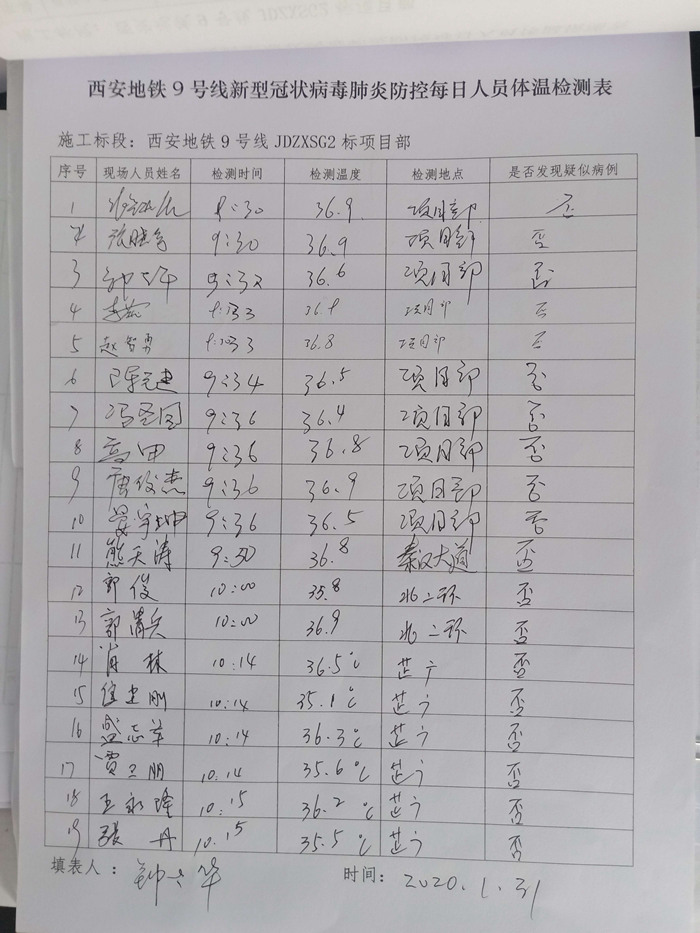 西安地铁9号线新型冠状病毒肺炎防控每日人员体温检测表
施工标段：西安地铁9号线JDZXSG2标项目部
序号 现场人员姓名 检测时间 检测温度 检测地点 是否发现疑似病例
1 9:30 36.9 项目部 否
2 张晓 9:30 36.9 项目部 否
3 9:32 36.6 项目部 否
4 9:33 项目部 否
5 赵智勇 9:33 36.8 项目部 否
6 陈 建 9:34 36.5 项目部 否
7 冯圣国 9:36 36.4 项目部 否
8 高田 9:36 36.8 项目部 否
9 唐俊杰 9:36 36.9 项目部 否
10 晏宇坤 9:36 36.5 项目部 否
11 熊天涛 9:30 36.8 秦汉大道 否
12 郭俊 10:00 35.8 北二环 否
13 郭 兵 10:00 36.9 北二环 否
14 肖林 10:14 36.5℃ 芷 否
15 刚 10:14 35.1℃ 芷 否
16 盛志 10:14 36.3℃ 芷 否
17 贾卫朋 10.14 35.6℃ 芷 否
18 王永隆 10:15 36.2℃ 芷 否
19 张丹 10.15 35.5℃ 芷 否
填表人： 时间：2020.1.31